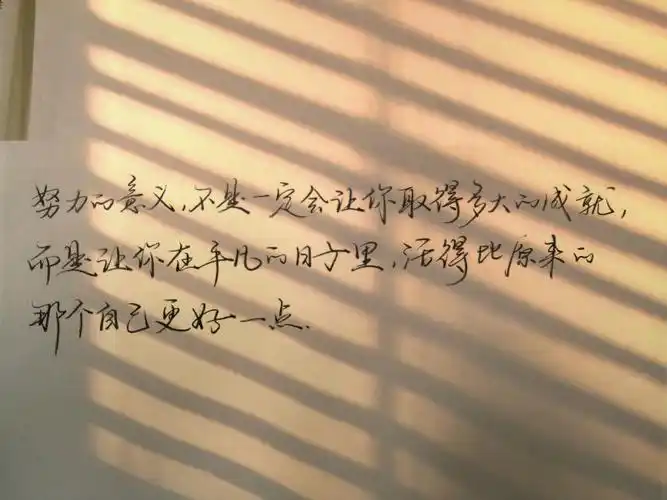 努力的意义,不是一定会让你取得多大的成就,
而是让你在平凡的日子里,活得比原来的
那个自己更好一点.